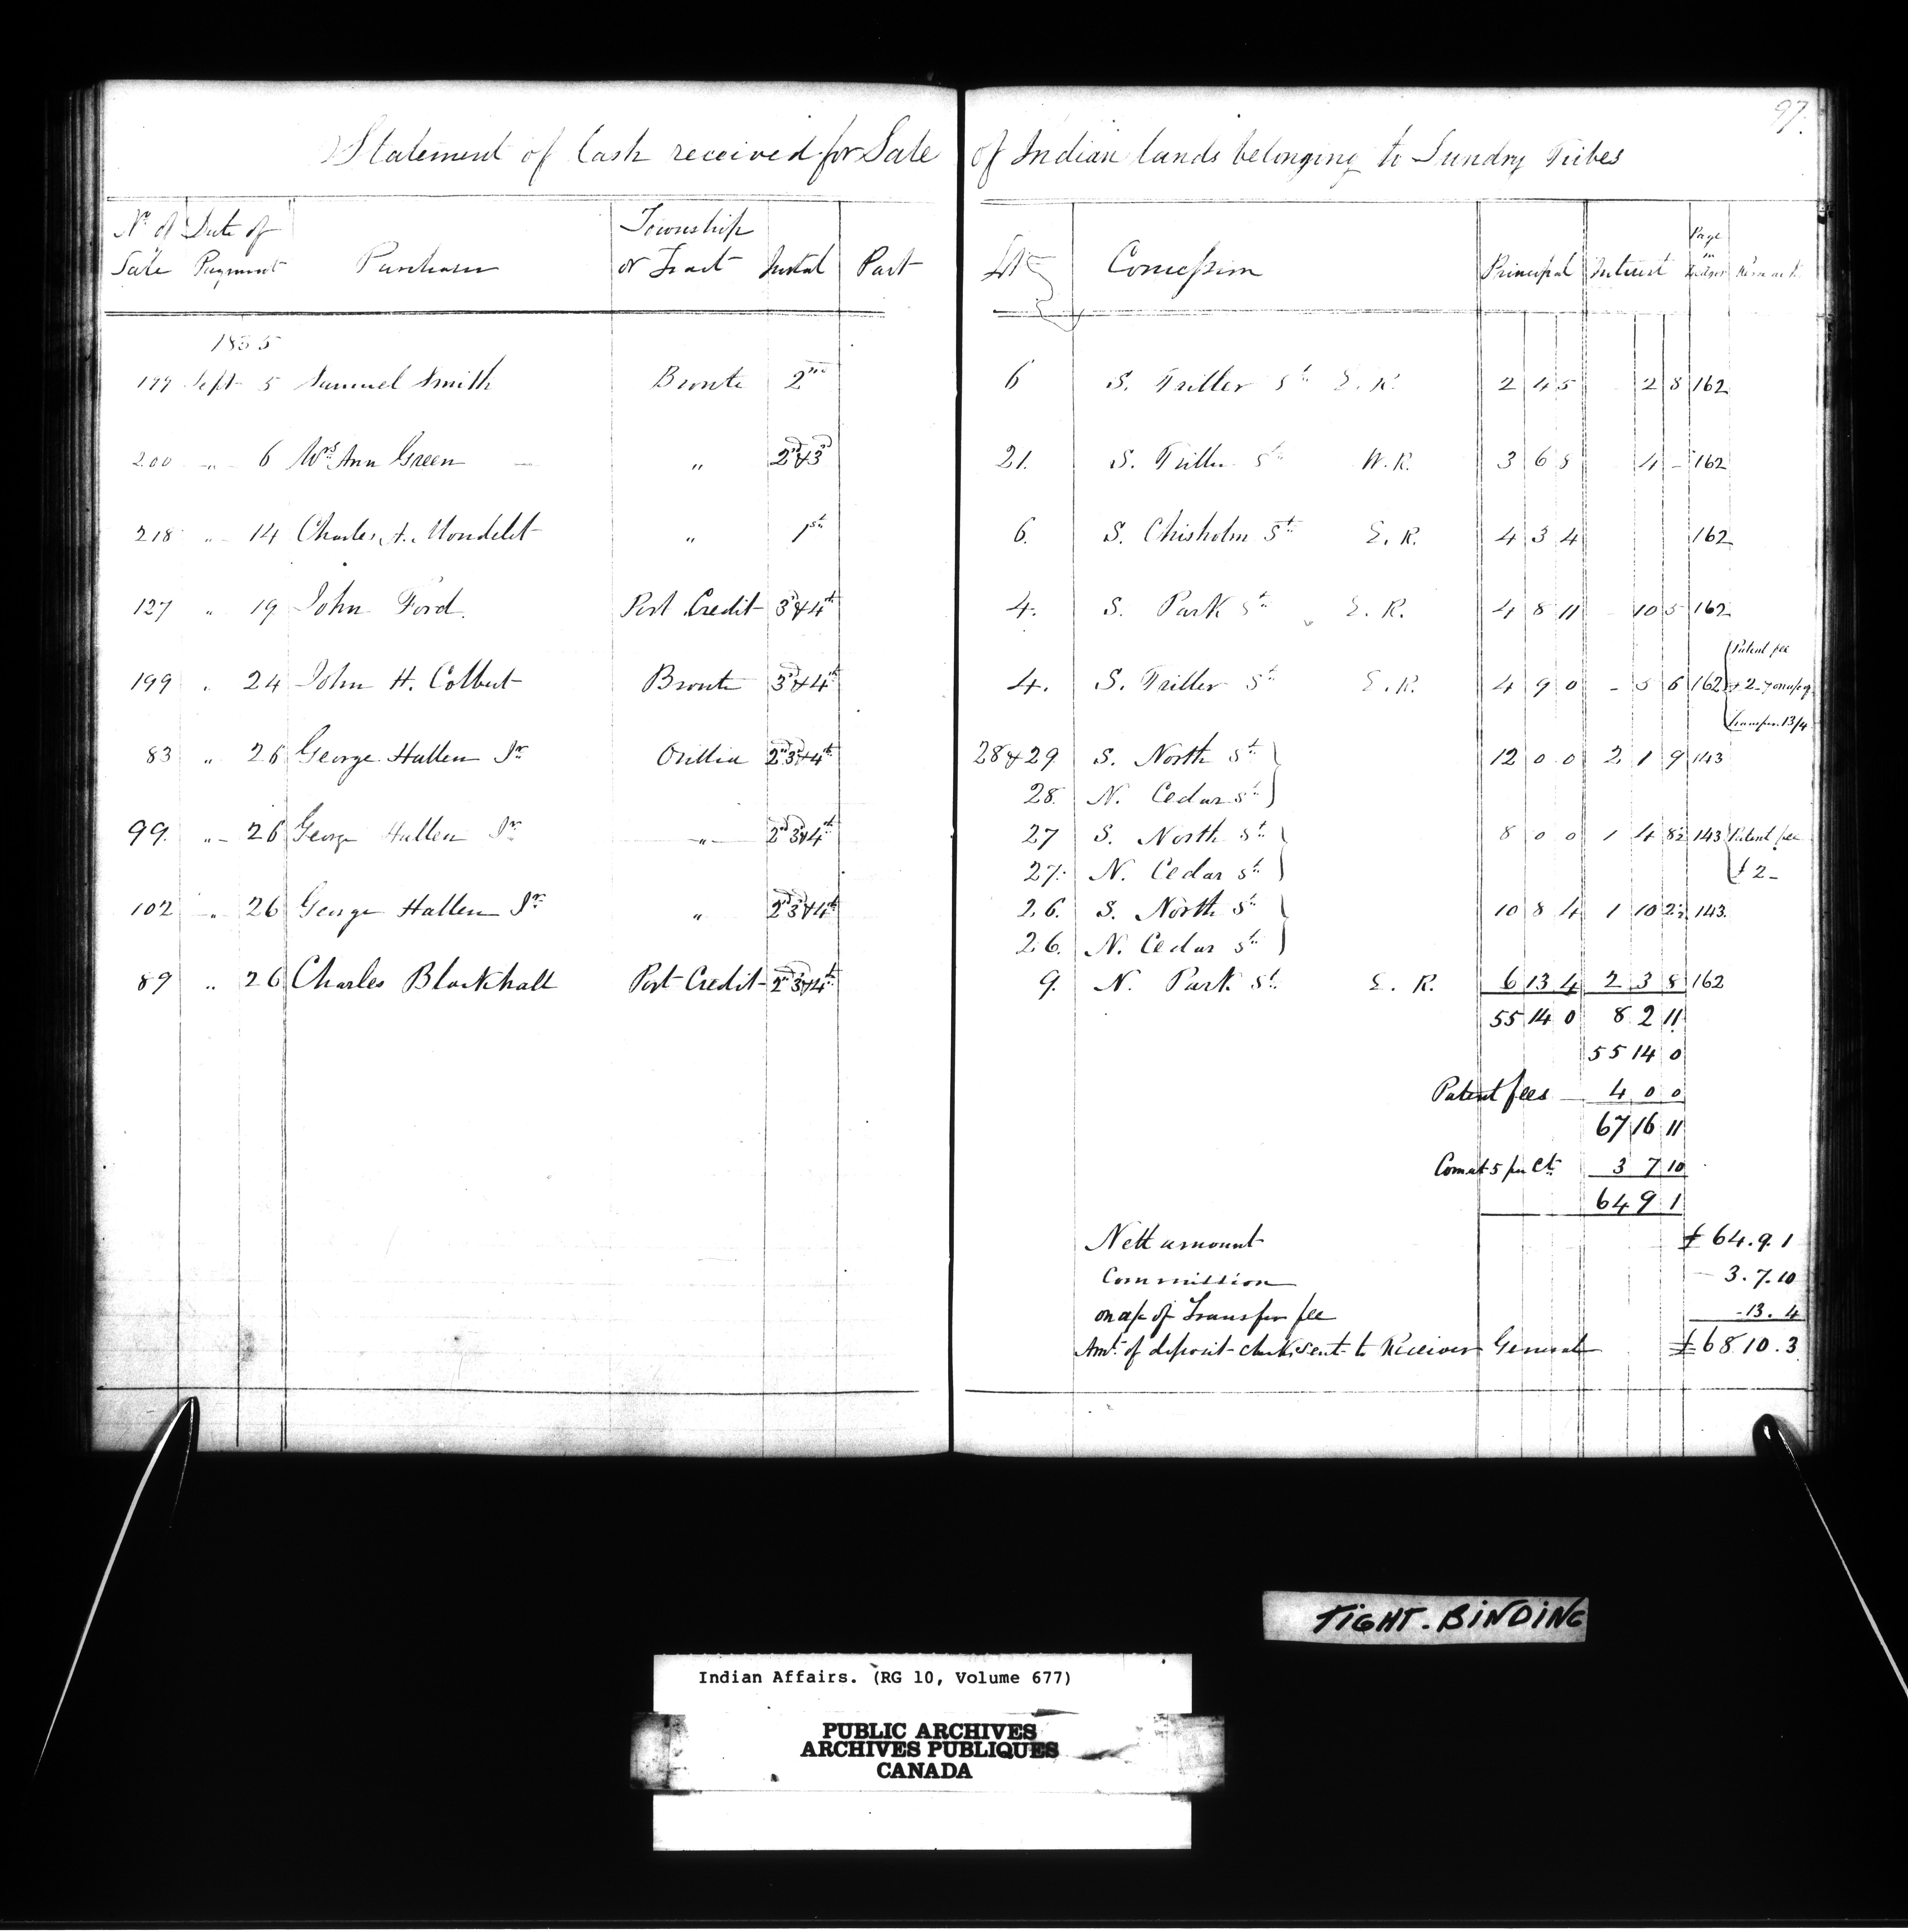 97.
Statement of Cash received for Sale of Indian lands belonging to Sundry Tribes
No. of Sale Date of Payment Purchaser Township or Tract Instal Part Lots Concession Principal Interest Page in Ledger Remarks
1855
177 Sept 5 Samuel Smith Bronte 2nd 6 S. Triller St. E. R. 2 4 5 2 8 162
200 " 6 Mrs. Ann Green " 2d & 3d 21. S. Triller St. W. R. 3 6 8 4 - 162
218 " 14 Charles A. Mondelet " 1st 6. S. Chisholm St. E. R. 4 3 4 162
127 " 19 John Ford. Port Credit 3d & 4th 4. S. Park St. E. R. 4 8 11 10 5 162
Patent fee
199 " 24 John H. Colbert Bronte 3d & 4th 4. S. Triller St. E. R. 4 9 0 - 5 6 162 £2 - & on a/c of
Transfer 13/4
83 " 26 George Hallen Jr. Orillia 2nd 3d & 4th 28 & 29 S. North St. 12 0 0 2 1 9 143
28. N. Cedar St.
99. " 26 George Hallen Jr. " 2nd 3d & 4th 27 S. North St. 8 0 0 1 4 8½ 143 Patent fee
27. N. Cedar St. £2 -
102 " 26 George Hallen Jr. " 2nd 3d & 4th 26. S. North St. 10 8 4 1 10 2½ 143.
26. N. Cedar St.
89 " 26 Charles Blackhall Port Credit 2nd 3d & 4th 9. N. Park St. E. R. 6 13 4 2 3 8 162
55 14 0 8 2 11
55 14 0
Patent fees 4 0 0
67 16 11
Com at 5 per Ct. 3 7 10
64 9 1
Nett amount £64. 9. 1
Commission 3. 7. 10
on a/c of Transfer fee - 13. 4
Amt. of deposit check sent to Receiver General £68 10. 3
TIGHT. BINDING
Indian Affairs. (RG 10, Volume 677)
PUBLIC ARCHIVES
ARCHIVES PUBLIQUES
CANADA